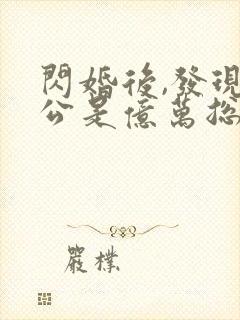 閃婚後,發現
公是億萬總
嚴樸